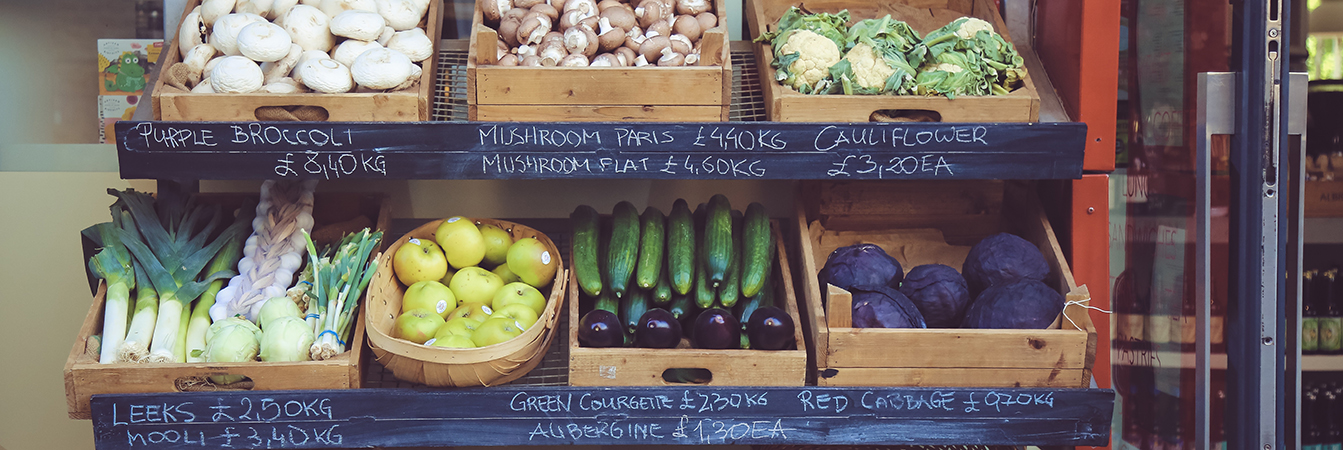 PURPLE BROCCOLI
£8,40KG
MUSHROOM PARIS £4,40KG
MUSHROOM FLAT £4,60KG
CAULIFLOWER
£3,20EA
LEEKS £2,50KG
MOOLI £3,40KG
GREEN COURGETTE £2,30KG
AUBERGINE £1,30EA
RED CABBAGE £0,20KG